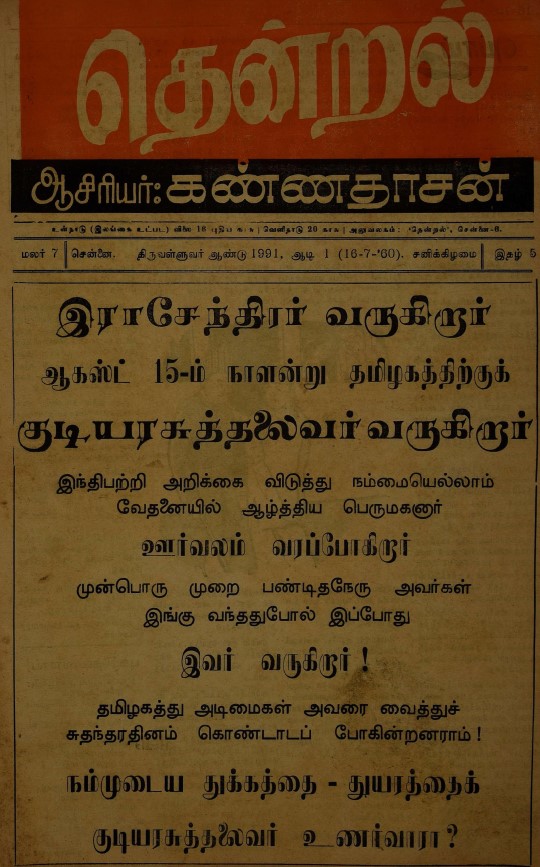 தென்றல்
ஆசிரியர்: கண்ணதாசன்
உள்நாடு (இலங்கை உட்பட) விலை 18 புதிய காசு | வெளிநாடு 20 காசு | அலுவலகம்: 'தென்றல்', சென்னை-6.
மலர் 7 | சென்னை. திருவள்ளுவர் ஆண்டு 1991, ஆடி 1 (16-7-'60). சனிக்கிழமை | இதழ் 5
இராசேந்திரர் வருகிறார்
ஆகஸ்ட் 15-ம் நாளன்று தமிழகத்திற்குக்
குடியரசுத்தலைவர் வருகிறார்
இந்திபற்றி அறிக்கை விடுத்து நம்மையெல்லாம்
வேதனையில் ஆழ்த்திய பெருமகனார்
ஊர்வலம் வரப்போகிறார்
முன்பொரு முறை பண்டிதநேரு அவர்கள்
இங்கு வந்ததுபோல் இப்போது
இவர் வருகிறார் !
தமிழகத்து அடிமைகள் அவரை வைத்துச்
சுதந்தரதினம் கொண்டாடப் போகின்றனராம் !
நம்முடைய துக்கத்தை - துயரத்தைக்
குடியரசுத்தலைவர் உணர்வாரா ?